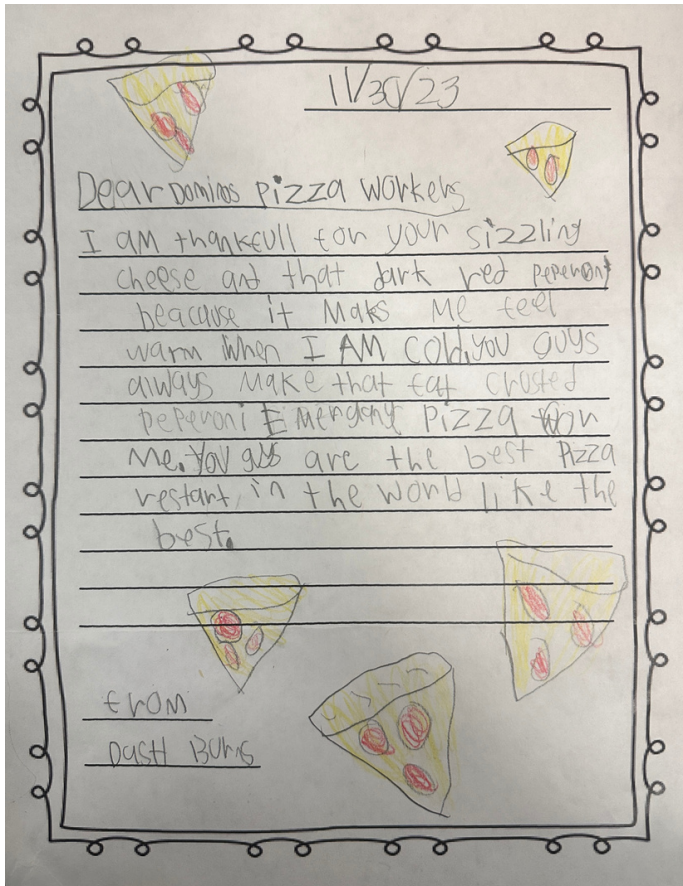 11/30/23
Dear Dominos pizza workers
I am thankfull for your sizzling
cheese and that dark red peperoni
beacause it Maks Me feel
warm when I AM cold, you guys
always Make that fat crusted
peperoni Emergany Pizza for
Me. You guys are the best Pizza
restart in the world like the
best.
from
Dash Burns